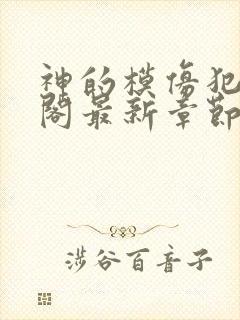 神的模傷犯
閣最新章節
涉谷百音子